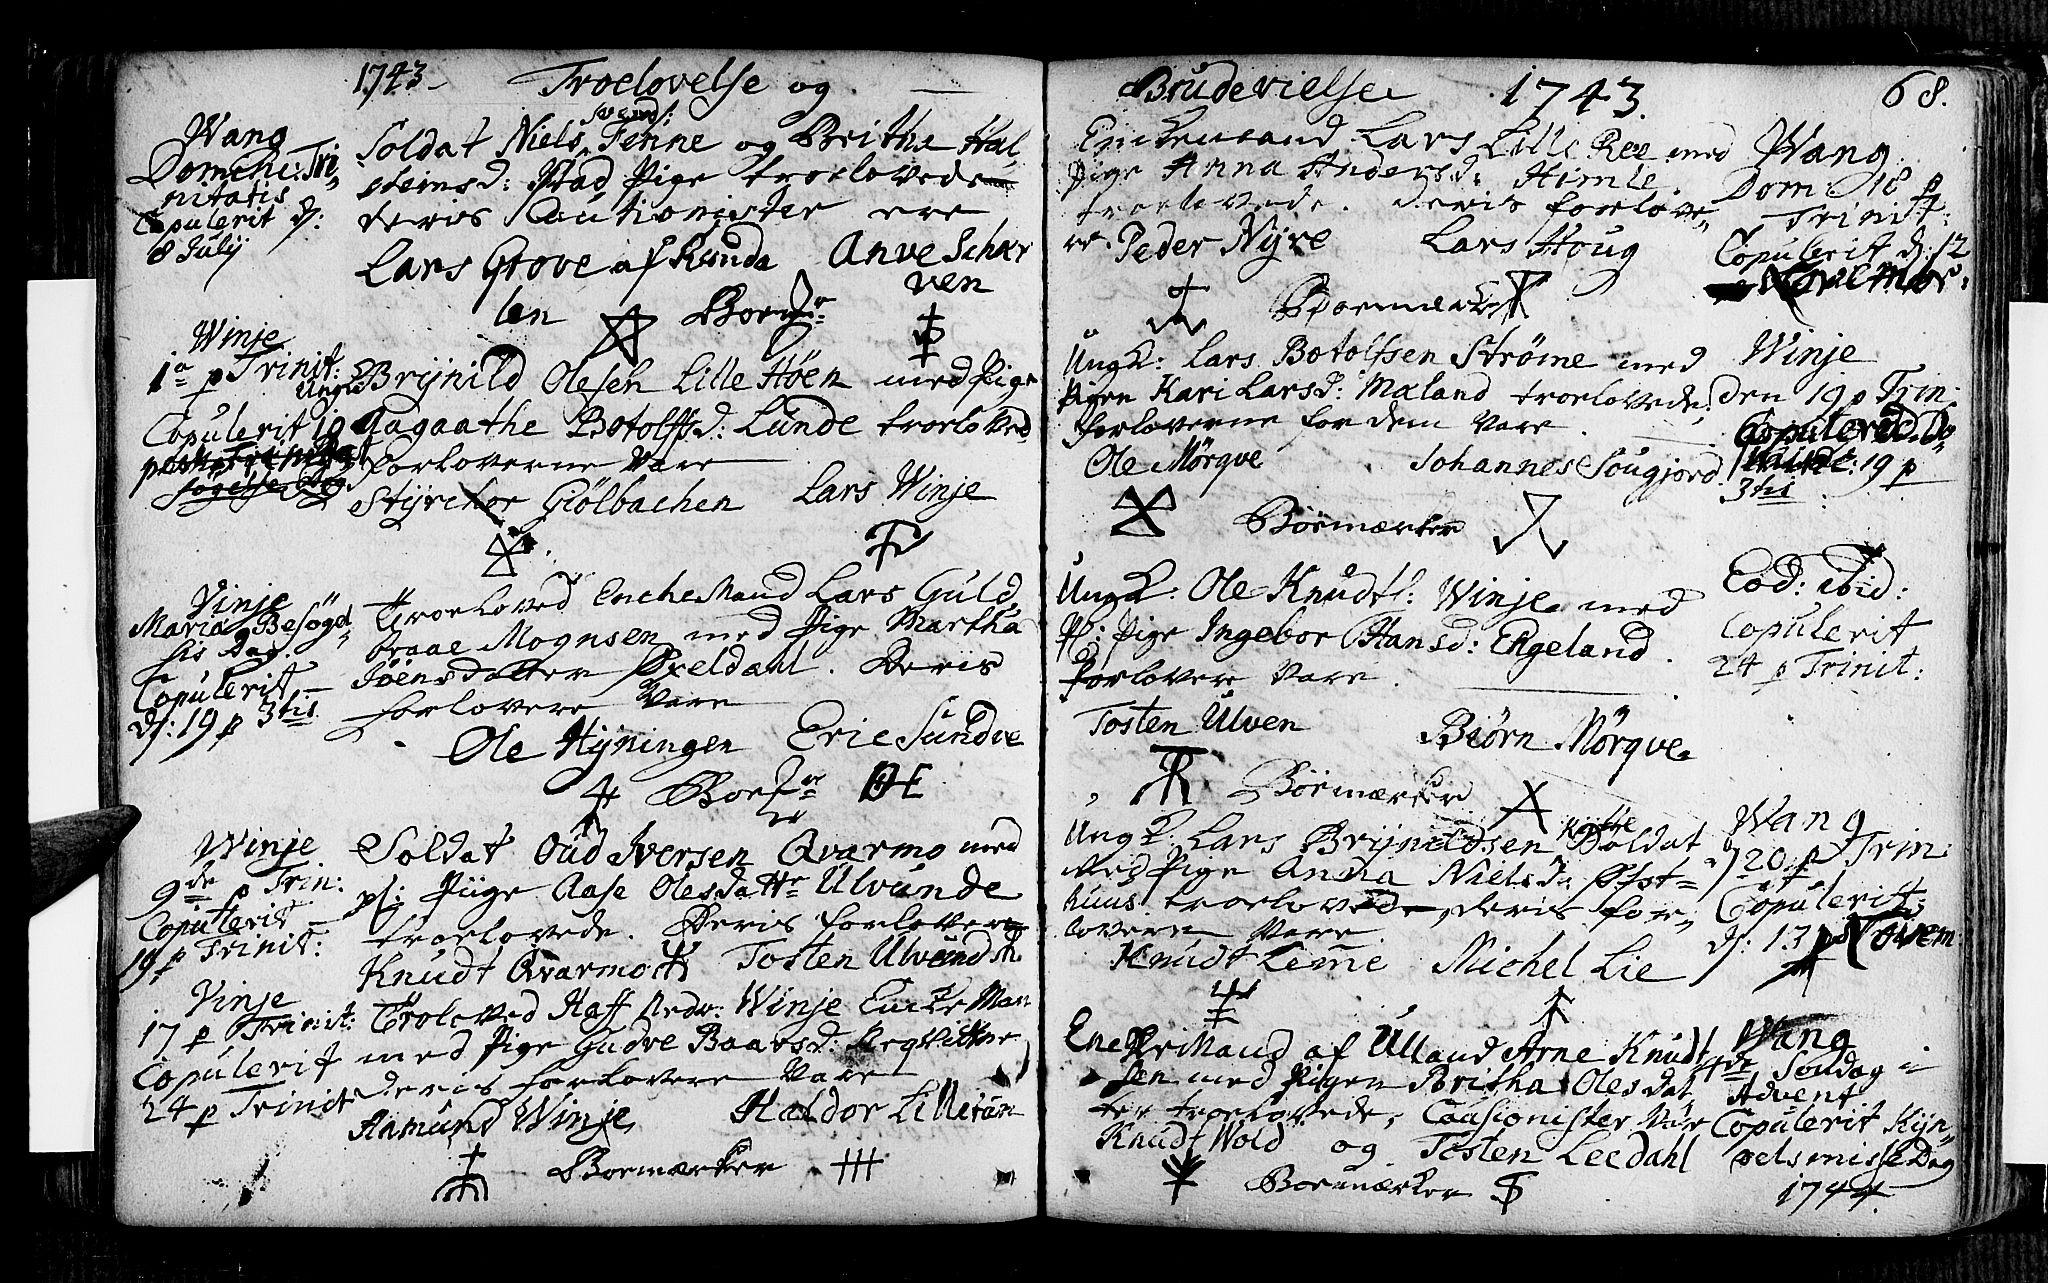 1743 Troelovelse og
Wang
Domche: Tri-
nitatis
Copulerit d:
8 Julij
Soldat Niels Svends: Tenne og Brithe Hal-
steinsd: Stad Pige troelovede
deris Cautionister ere
Lars Grove af Runda Anve Schar
len Boem ven
Winje
1a p Trinit:
Copulerit 19
Ungk Brynild Olesen Lille Höen med Pige
Aagaathe Botolffsd: Lunde troeloved
Forloverne Vare
Styrchor Giölbachen Lars Winje
Vinje
Mariæ Besögel-
sis Dag.
Copulerit
d: 19 p 3tis
Troeloved Enche Mand Lars Guld
braae Mognsen med Pige Martha
Jöensdatter Øxeldahl. Deris
forlovere Vare
Ole Hyningen Eric Sundve
Boem
Winje
9de p Trin:
Copulerit
19 p Trinit:
Soldat Oud Iversen Qvarmo med
pl: Piige Aase Olesdattr Ulvunde
troelovede. Deris forlovere
Knudt Qvarmo Tosten Ulvund
Vinje
17 p Trinit:
Copulerit
24 p Trinit
Troloved Haff Nedr: Winje Encke Man
med Pige Gudve Baarsd:
deris forlovere Vare
Aamund Winje Haldor Lilletun
Boemærker
Brudevielse 1743. 68.
Enckemand Lars Lille Ree med
Pige Anna Andersd: Himle.
troelovede. deris forlove-
re. Peder Nyre Lars Houg
Boemærker
Wang
Dom: 18 p
Trinit:
Copulerit d: 12
Novembr:
Ungk: Lars Botolfsen Ströme med
Pigen Kari Larsd: Mæland troelovede,
forloverne for dem Vare
Ole Mörqve Johannes Sougjord
Boemærker
Winje
den 19 p Trin:
19 p
3tis
Ungk: Ole Knudts: Winje med
pl: Pige Ingebor Hansd: Engeland.
forlovere Vare.
Tosten Ulven Biörn Mörqve
Boemærker
Eod: ibid:
Copulerit
24 p Trinit:
Ungk: Lars Brynildsen Kytte Soldat
med Pige Anna Nielsd: Øst-
huus troelovede, deris for-
lovere Vare
Knudt Leme Michel Lie
Wang
d 20 p Trin:
Copulerit
d: 13 Novem:
Enckemand af Ulland Arne Knudt
sen med Pigen Britha Olesdat
ter troelovede, Cautionister Var
Knudt Wold og Tosten Leedahl
Boemærker
Wang
Söndag i
Advent
Copulerit Kyn-
delsmisse Dag
1744.